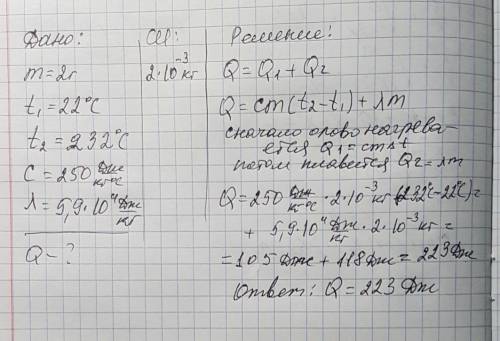 Дано:
m=2г
t₁=22°C
t₂=232°C
C=250 Дж/кг°C
λ=5,9·10⁴ Дж/кг
Q-?
СИ:
2·10⁻³кг
Решение:
Q=Q₁+Q₂
Q=cm(t₂-t₁)+λm
сначало олово нагрева-
ется Q₁=cmΔt
потом плавится Q₂=λm
Q=250 Дж/кг°C·2·10⁻³кг(232°C-22°C)=
+ 5,9·10⁴ Дж/кг·2·10⁻³кг=
=105Дж+118Дж=223Дж
Ответ: Q=223Дж